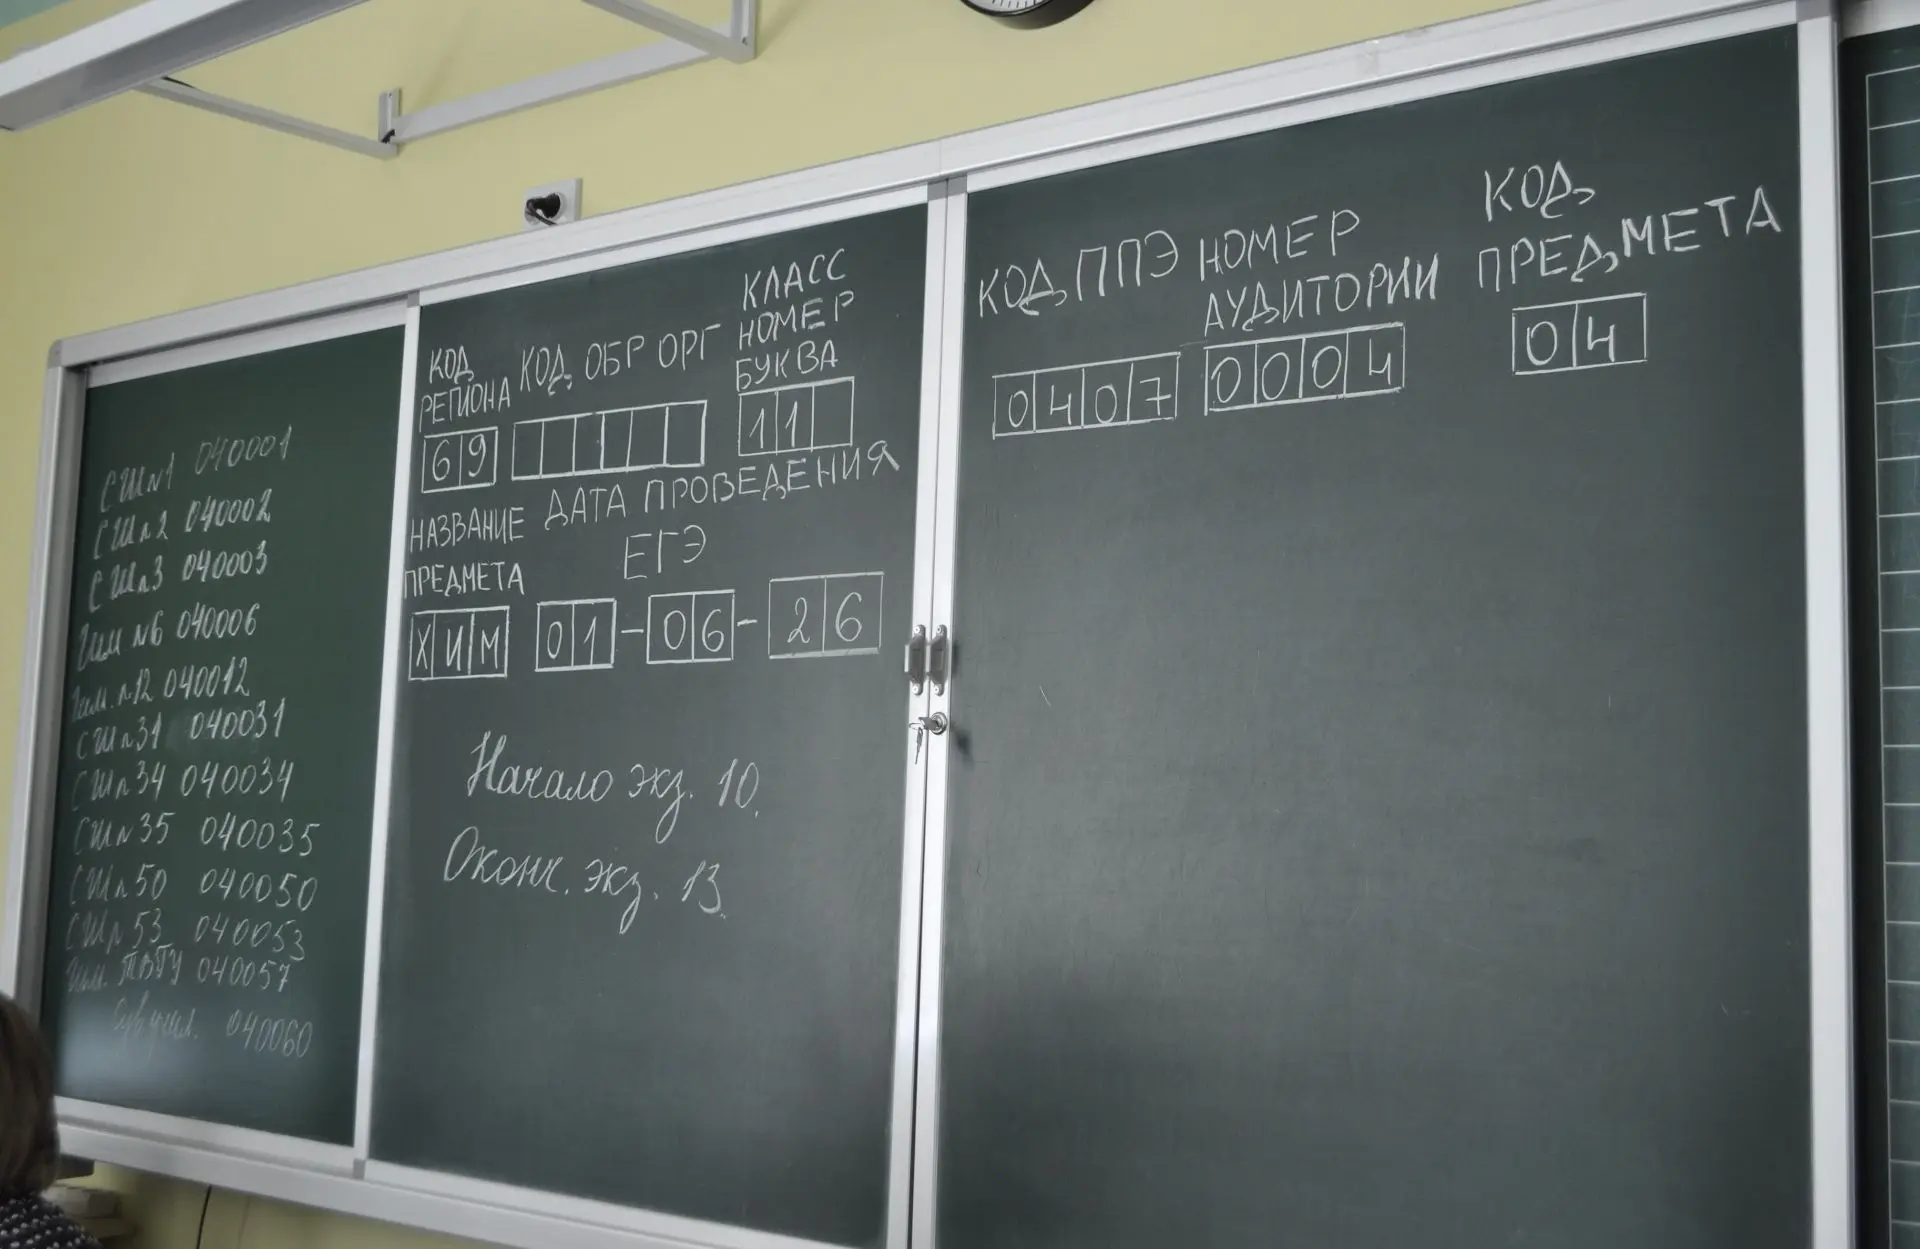 СШ №1 040001
СШ №2 040002
СШ №3 040003
Гим №6 040006
Гим. №12 040012
СШ №31 040031
СШ №34 040034
СШ №35 040035
СШ №50 040050
СШ №53 040053
Гим. ТвГУ 040057
Сув. учил. 040060
КОД РЕГИОНА
69
КОД ОБР ОРГ
КЛАСС
НОМЕР
БУКВА
11
НАЗВАНИЕ
ПРЕДМЕТА
ХИМ
ДАТА ПРОВЕДЕНИЯ
ЕГЭ
01-06-26
Начало экз. 10.
Оконч. экз. 13.
КОД ППЭ
0407
НОМЕР
АУДИТОРИИ
0004
КОД
ПРЕДМЕТА
04